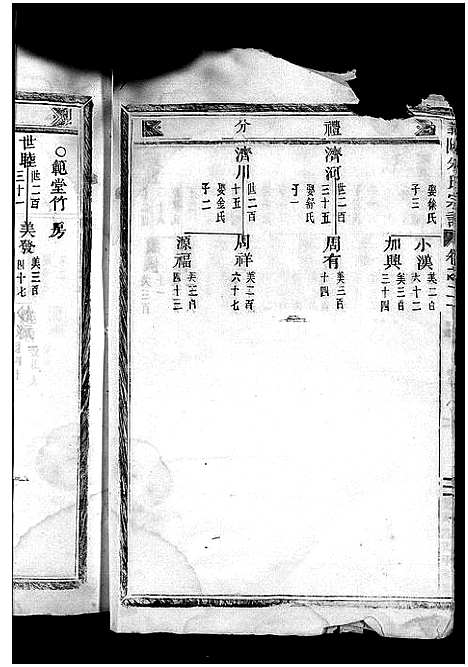 禮分
娶徐氏
子三
小漢 美二百六十二
加興 美三百三十四
濟河 世二百三十五
娶舒氏
子一
周有 美三百十四
濟川 世二百三十五
娶金氏
子二
周祥 美二百六十七
源福 美三百四十三
○範堂竹房
世睦 世二百三十一
美發 美三百四十七